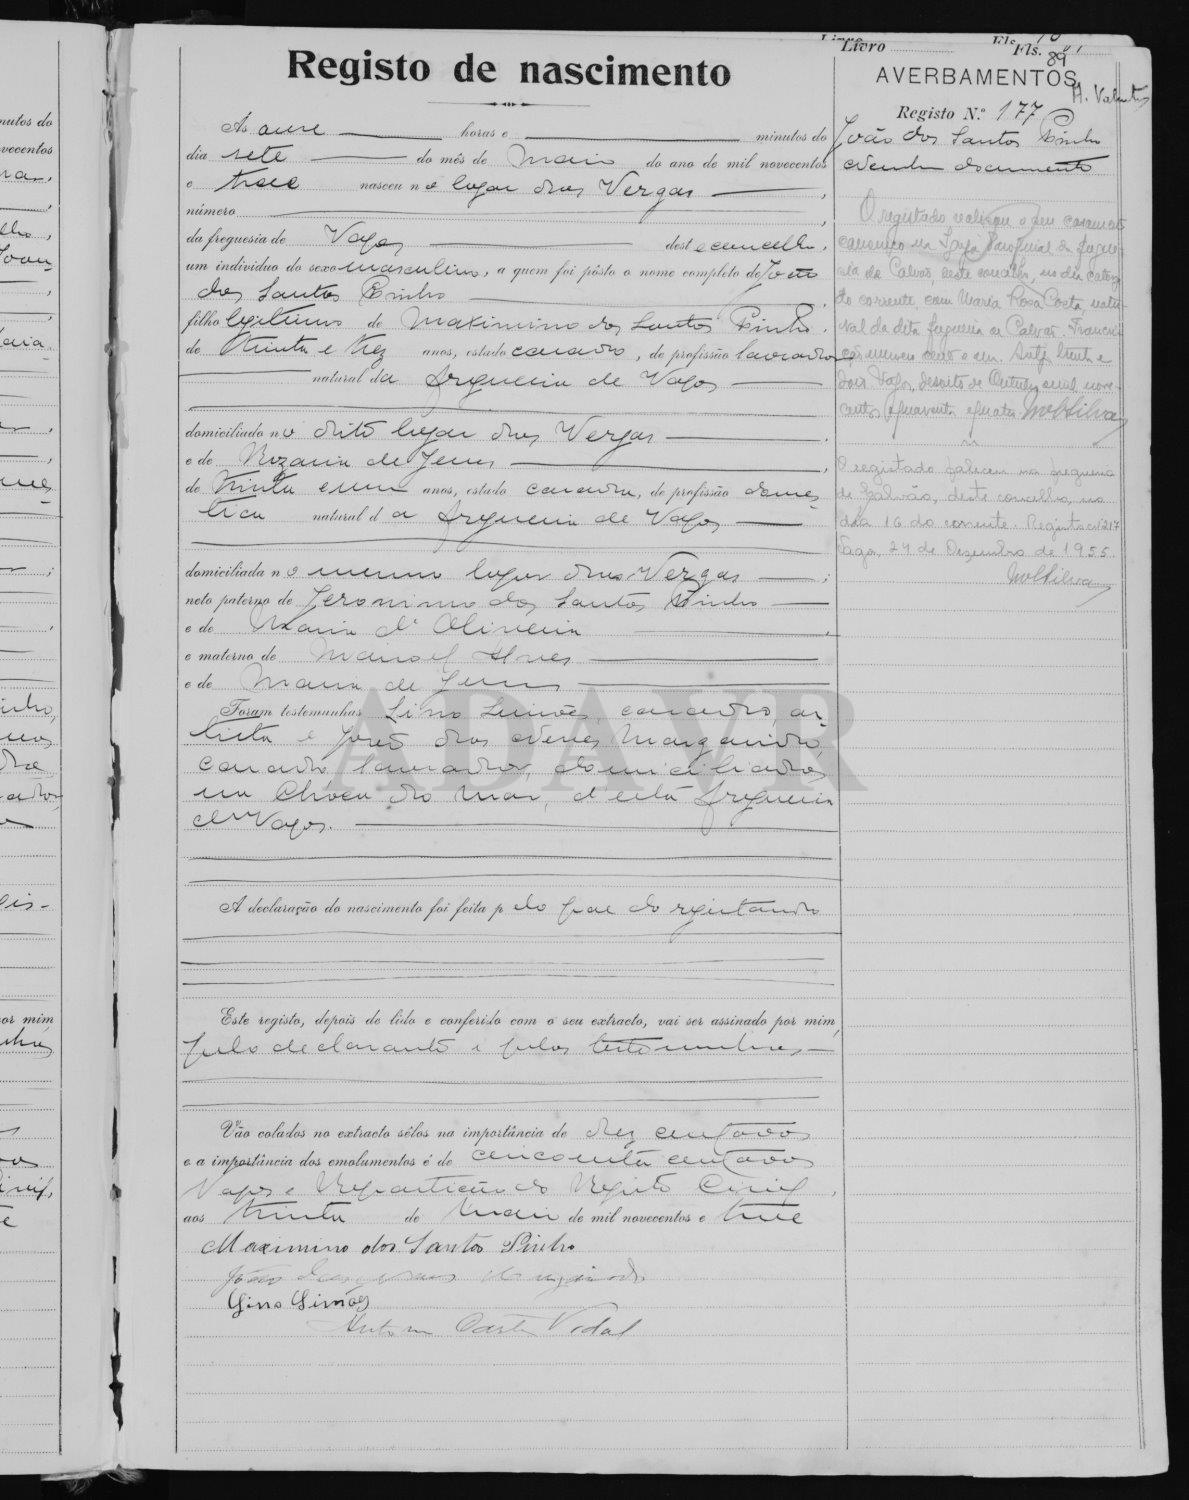 Livro Fls. 89
Registo de nascimento
AVERBAMENTOS
Registo N.º 177
João dos Santos Pinho
documento
Ás onze horas e minutos do
dia sete do mês de Maio do ano de mil novecentos
e treze nasceu no lugar das Vergas,
número
da freguesia de Vagos deste concelho,
um individuo do sexo masculino, a quem foi pôsto o nome completo de João
dos Santos Pinho
filho legitimo de Maximino dos Santos Pinho,
de trinta e trez anos, estado casado, de profissão lavrador
natural da freguesia de Vagos
domiciliado no dito lugar das Vergas
e de Rozaria de Jesus,
de trinta e um anos, estado casada, de profissão domes-
tica natural da freguesia de Vagos
domiciliada no mesmo lugar das Vergas;
neto paterno de Jeronimo dos Santos Pinho
e de Maria d'Oliveira,
e materno de Manoel Alves
e de Maria de Jesus
Foram testemunhas Lino Simões, casado, ar-
tista e João das Neves Margarido,
casado, lavrador, domiciliados
em Choca do Mar, d'esta freguesia
de Vagos.
A declaração do nascimento foi feita pelo pae do registando
Este registo, depois de lido e conferido com o seu extracto, vai ser assinado por mim,
pelo declarante e pelas testemunhas
Vão colados no extracto sêlos na importância de dez centavos
e a importância dos emolumentos é de cincoenta centavos
Vagos e Repartição do Registo Civil,
aos trinta de Maio de mil novecentos e treze
Maximino dos Santos Pinho
João das Neves Margarido
Lino Simões
Vidal
O registado realizou o seu casamento
canonico na Igreja Paroquial da fregue-
sia de Calvão, deste concelho, no dia catorze
do corrente, com Maria Rosa Costa, natu-
ral da dita freguesia de Calvão.
trinta e
dois. Vagos, dezoito de Outubro de mil nove-
centos e quarenta e quatro.
O registado faleceu na freguesia
de Calvão, deste concelho, no
dia 16 do corrente. Registo nº 217
Vagos, 24 de Dezembro de 1955.
ADAVR